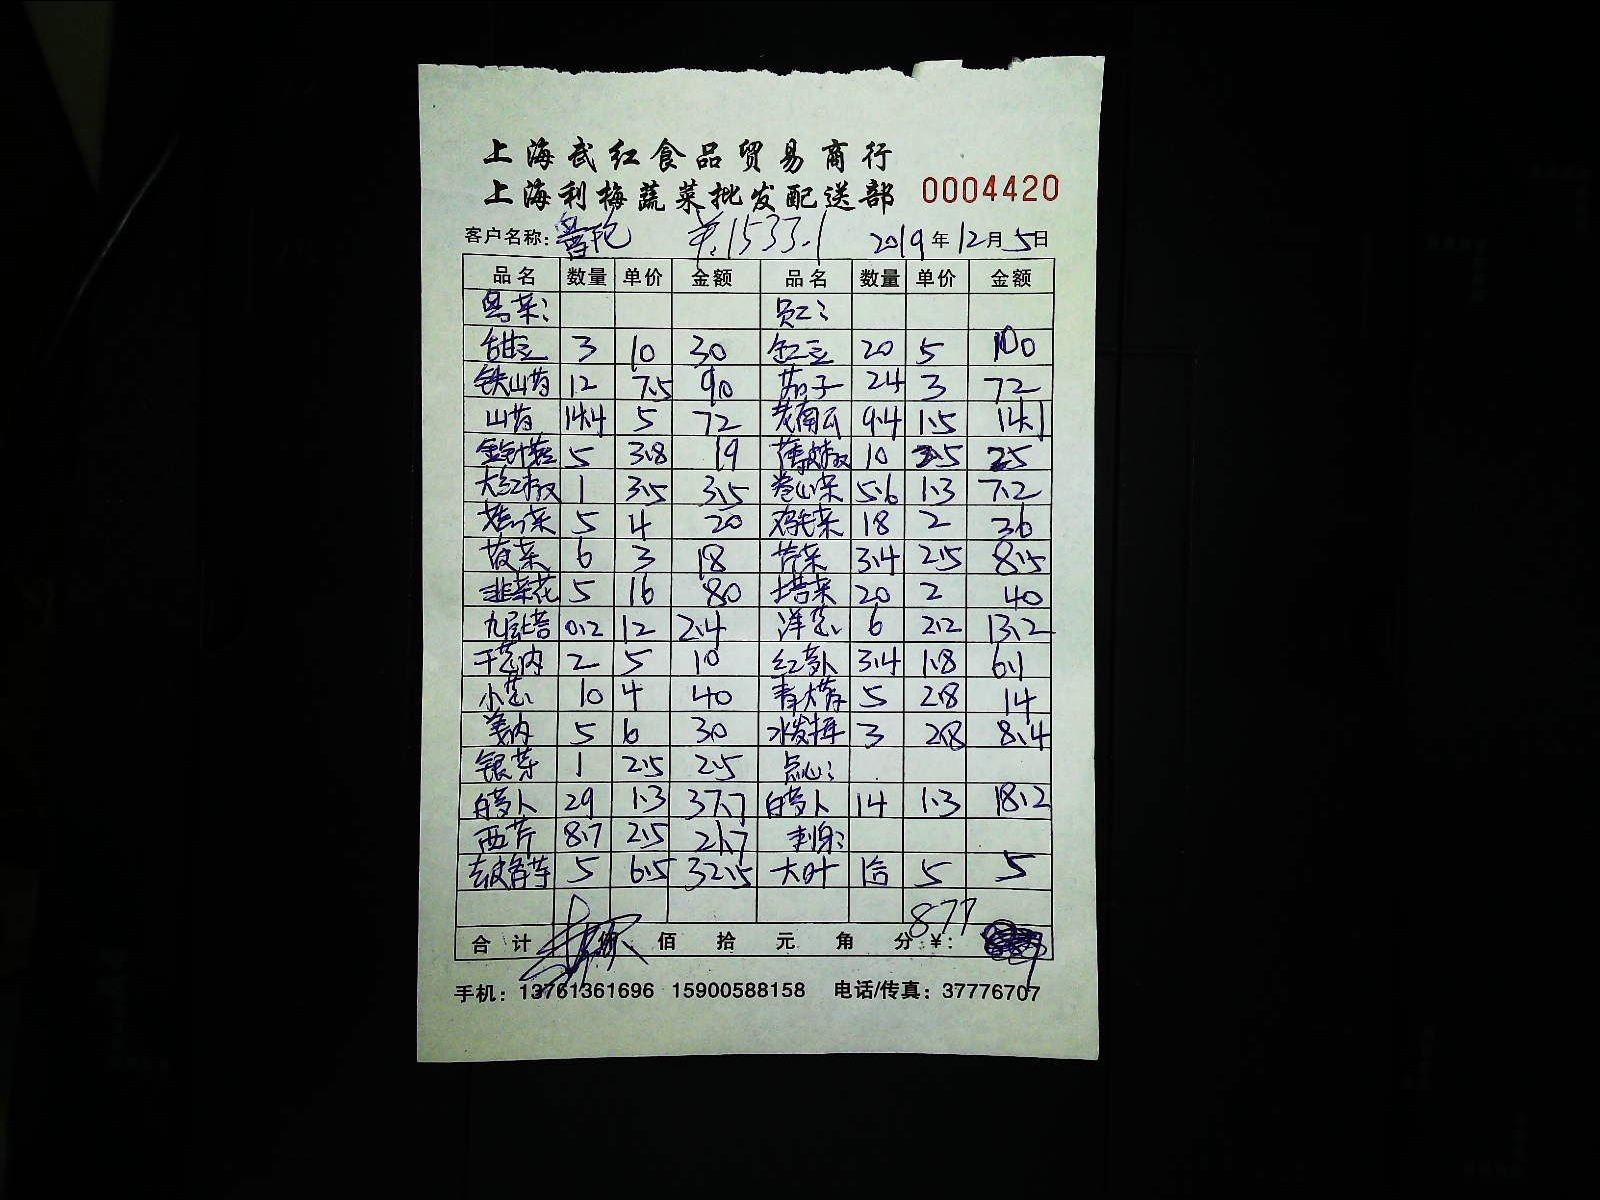 上海武红食品贸易商行
上海利梅蔬菜批发配送部 0004420
客户名称: ¥:1533.1 2019年12月5日
品名 数量 单价 金额 品名 数量 单价 金额
员工:
甜豆 3 10 30 豇豆 20 5 100
铁山药 12 7.5 90 茄子 24 3 72
山药 14.4 5 72 老南瓜 9.4 1.5 14.1
金针菇 5 3.8 19 薄皮椒 10 2.5 25
大红椒 1 3.5 3.5 卷心菜 5.6 1.3 7.2
5 4 20 鸡毛菜 18 2 36
菠菜 6 3 18 芹菜 3.4 2.5 8.5
韭菜花 5 16 80 塔菜 20 2 40
九层塔 0.2 12 2.4 洋葱 6 2.2 13.2
干葱肉 2 5 10 红萝卜 3.4 1.8 6.1
小葱 10 4 40 5 2.8 14
姜肉 5 6 30 3 2.8 8.4
银芽 1 2.5 2.5 点心:
白萝卜 29 1.3 37.7 白萝卜 14 1.3 18.2
西芹 8.7 2.5 21.7 刺身:
5 6.5 32.5 大叶 5 5
877
合计 佰 拾 元 角 分 ¥:
手机: 13761361696 15900588158 电话/传真: 37776707